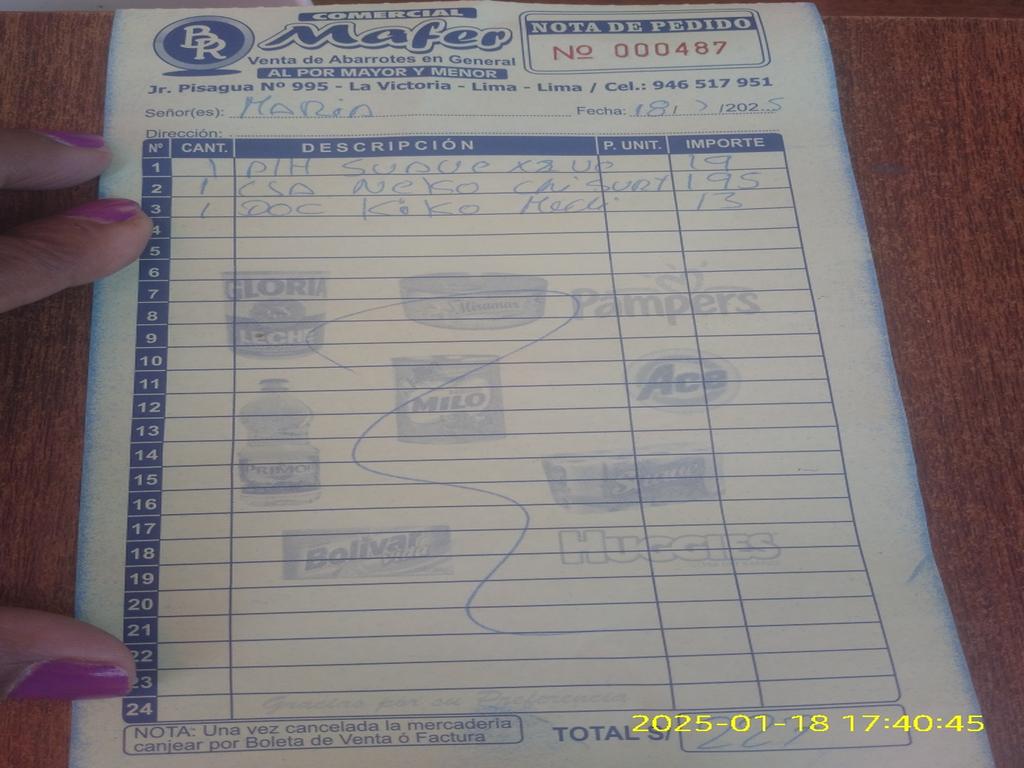 BR
COMERCIAL
Mafer
Venta de Abarrotes en General
AL POR MAYOR Y MENOR
NOTA DE PEDIDO
Nº 000487
Jr. Pisagua Nº 995 - La Victoria - Lima - Lima / Cel.: 946 517 951
Señor(es): MARIA Fecha: 18/ /2025
Dirección:
Nº CANT. DESCRIPCIÓN P. UNIT. IMPORTE
1 1 P/H SUAVE 19
2 1 NEKO SURT 195
3 1 DOC KiKo 13
4
5
6
7
8
9
10
11
12
13
14
15
16
17
18
19
20
21
22
23
24
GLORIA
LECHE
Miramar
Pampers
MILO
Ace
PRIMOR
Bolivar
HUGGIES
Gracias por su Preferencia
NOTA: Una vez cancelada la mercaderia
canjear por Boleta de Venta ó Factura
TOTAL S/ 227
2025-01-18 17:40:45